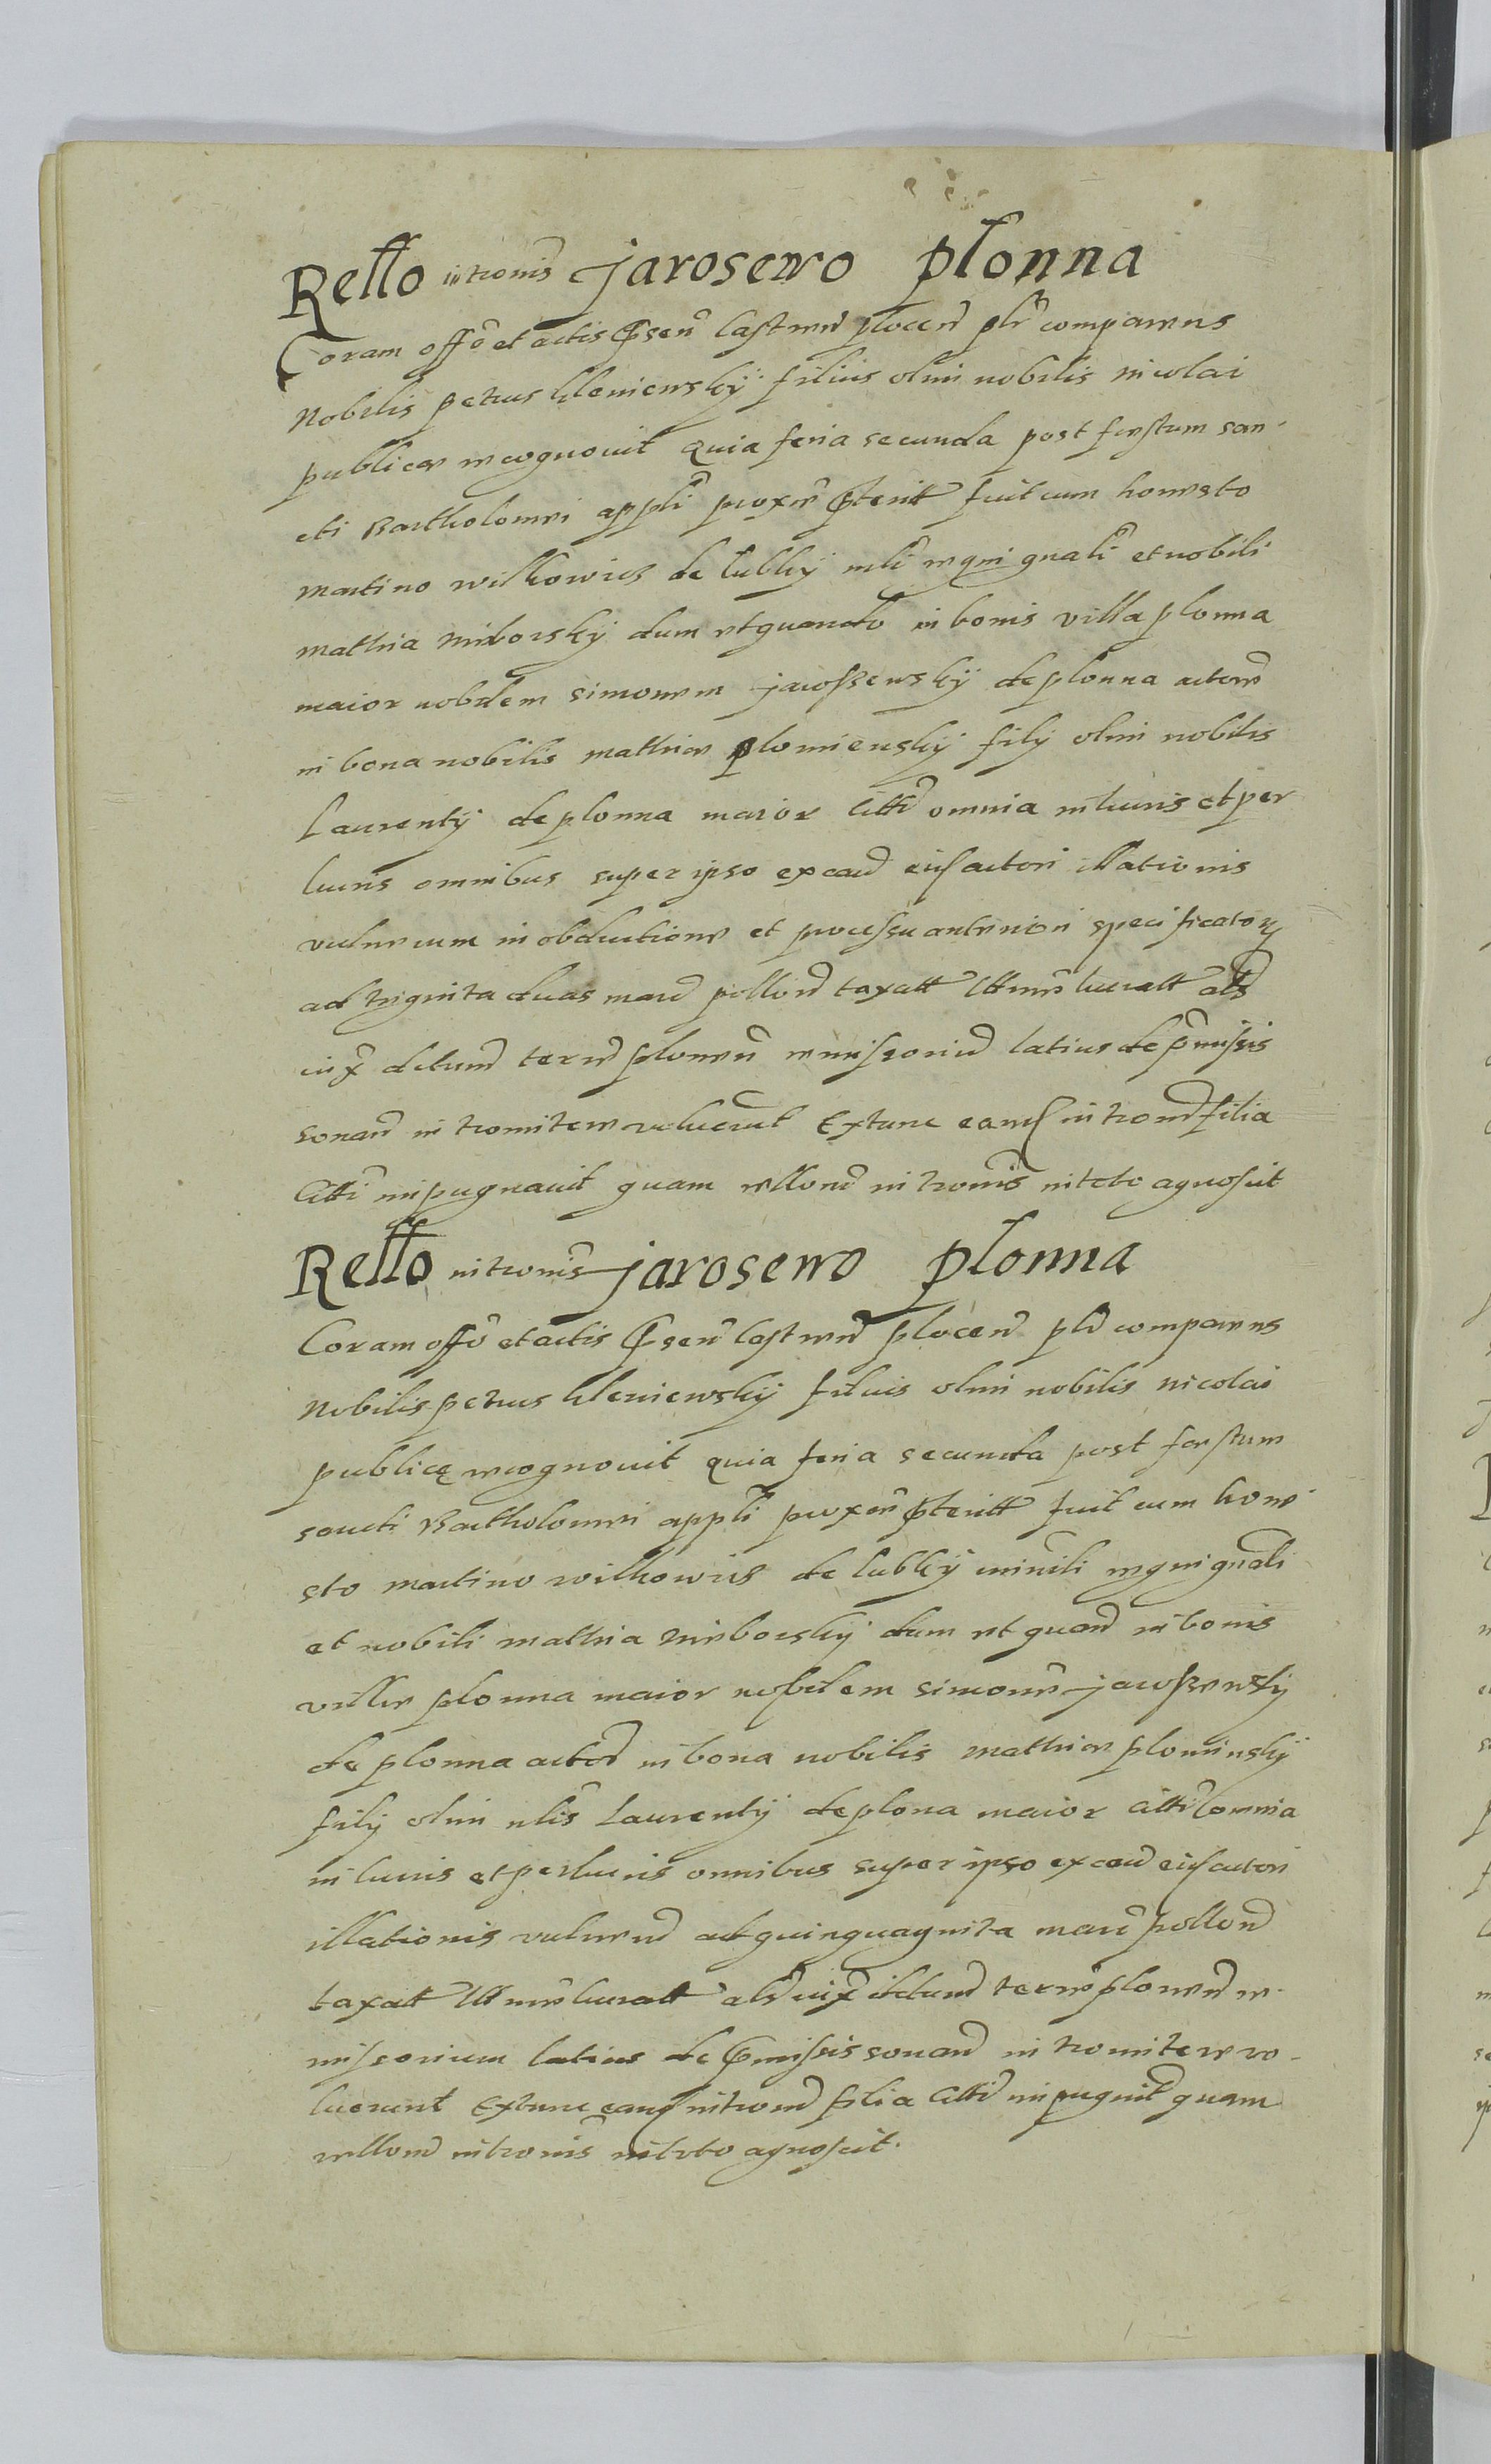 Rello intronis Jarosewo plonna
Coram offo et actis psen Castren plocen plr comparens
Nobilis petrus kleniewskÿ filius olim nobilis nicolai
publice recognouit Quia feria secunda post festum san-
cti Bartholomei appli proxe pteritt fuit cum honesto
martino wilkowicz de lubkÿ mli regni gnali et nobili
mathia niborskÿ dum et quando in bonis villa plonna
maior nobilem simonem jaroszewskÿ de plonna actore
in bona nobilis mathie plomienskÿ filÿ olim nobilis
Laurentÿ de plonna maior citti omnia in lucris et per
lucris omnibus super ipso ex caa eius actori illationis
vulnerum in obductione et processu anteriori specificator
ad triginta duas marc pollon taxatt lucratt als
iux dictum terre plonen remissorium latius de pmissis
sonan intromitere voluerunt Extunc eand intron filia
citti inpugnauit quam rellone intronis in toto agnoscit
Rello intronis Jarosewo plonna
Coram offo et actis psen Castren plocen plr comparens
Nobilis petrus kleniewskÿ filius olim nobilis nicolai
publice recognouit quia feria secunda post festum
sancti Bartholomei appli proxe pteritt fuit cum hone-
sto martino wilkowicz de lubkÿ ministli regni gnali
et nobili mathia nieborskÿ dum et quand in bonis
ville plonna maior nobilem simone jaroszewskÿ
de plonna actore in bona nobilis mathie plominskÿ
filÿ olim nlis Laurentÿ de plona maior citti omnia
in lucris et perlucris omnibus super ipso ex caa eius actori
illationis vulnerum ad quinquaginta marc pollon
taxatt lucratt als iux dictum terre plonen re-
missorium latius de pmissis sonan intromitere vo-
luerunt Extunc eand intron filia citti inpugnit quam
rellone intronis in toto agnoscit.